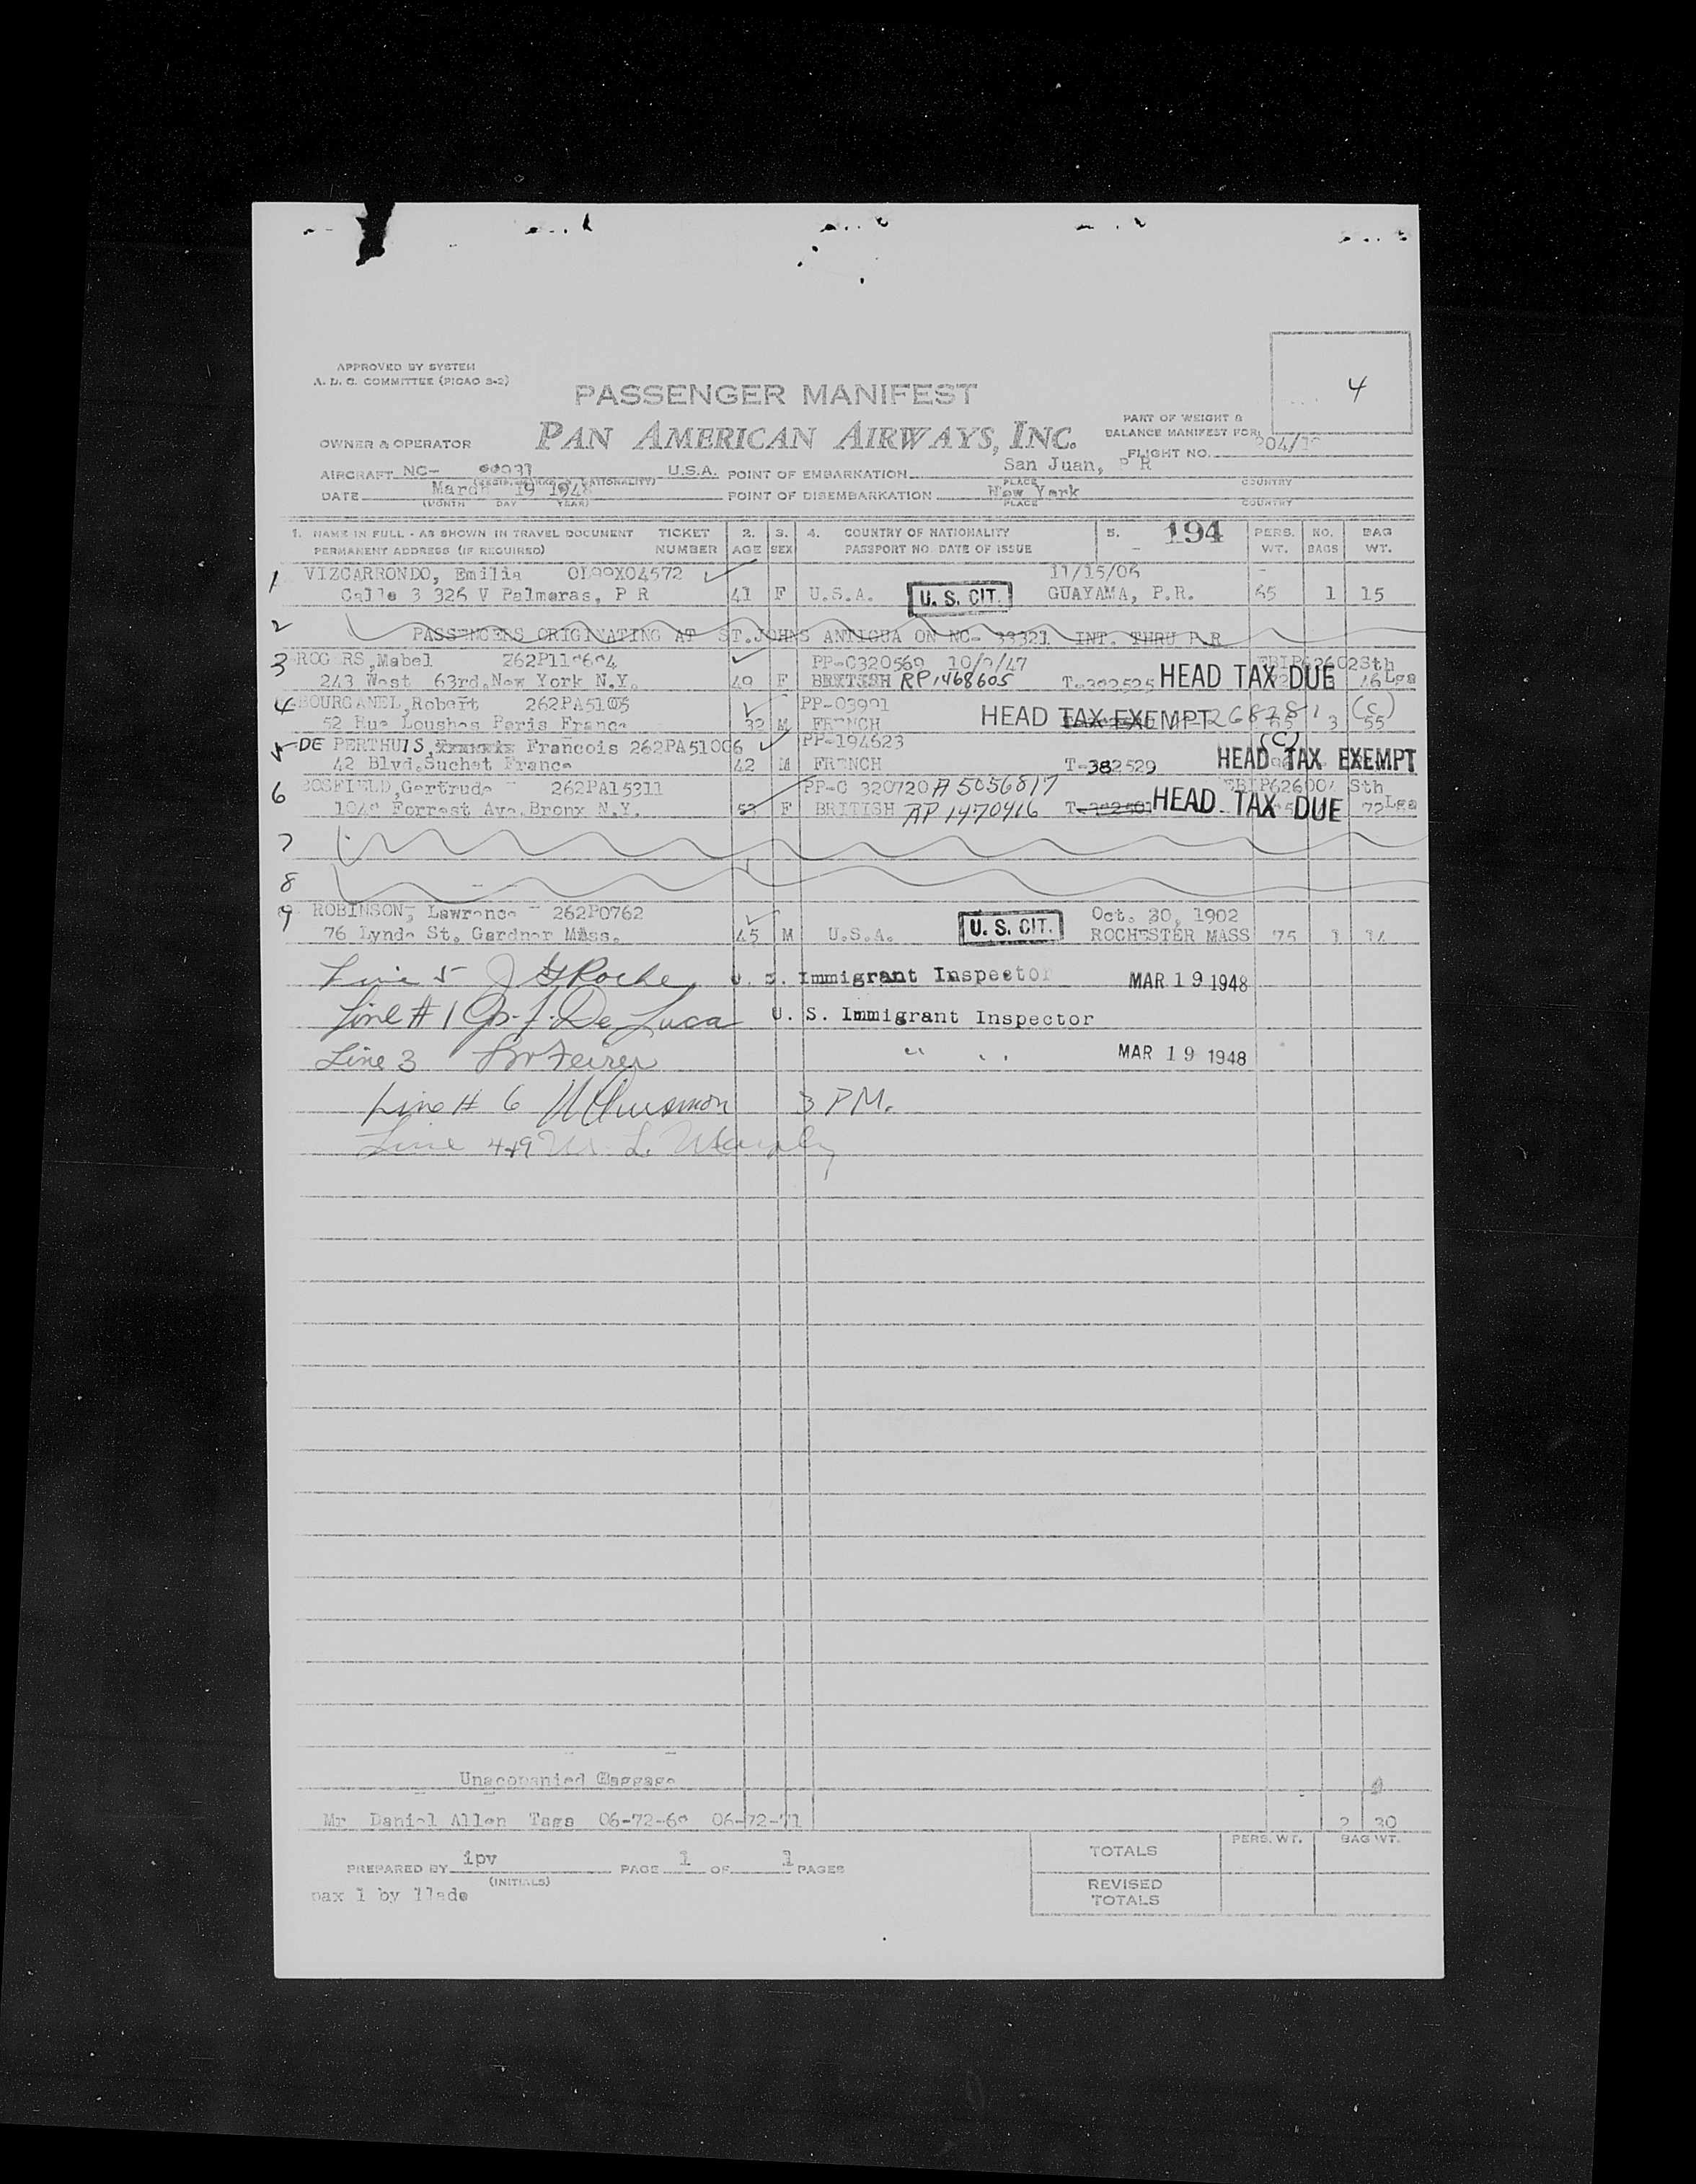 4
APPROVED BY SYSTEM
A. D. C. COMMITTEE (PICAO 3-2)
PASSENGER MANIFEST
PAN AMERICAN AIRWAYS, INC.
OWNER & OPERATOR
PART OF WEIGHT &
BALANCE MANIFEST FOR:
FLIGHT NO.
AIRCRAFT NC- U.S.A. POINT OF EMBARKATION San Juan, P R
PLACE COUNTRY
DATE March 19 1948 POINT OF DISEMBARKATION New York
(MONTH DAY YEAR) PLACE COUNTRY
1. NAME IN FULL - AS SHOWN IN TRAVEL DOCUMENT TICKET 2. 3. 4. COUNTRY OF NATIONALITY 5. 194 PERS. NO. BAG
PERMANENT ADDRESS (IF REQUIRED) NUMBER AGE SEX PASSPORT NO. DATE OF ISSUE WT. BAGS WT.
1 VIZCARRONDO, Emilia 11/15/06
Calle 3 326 V Palmeras, P R 41 F U.S.A. U. S. CIT. GUAYAMA, P.R. 65 1 15
2 PASSENGERS ORIGINATING AT ST.JOHNS ANTIGUA ON NC- 33321 INT. THRU P R
3 ROGERS,Mabel PP-C320569
243 West 63rd.New York N.Y. 49 F BRITISH RP1468605 T-382525 HEAD TAX DUE Lga
4 BOURGANEL,Robert PP-03991
52 Rue Paris France 32 M FRENCH HEAD TAX EXEMPT 3 55 (C)
5 DE PERTHUIS, Francois 262PA51006 PP-194623 (C)
42 Blvd.Suchet France 42 M FRENCH T-382529 HEAD TAX EXEMPT
6 BOSFIELD,Gertrude 262PA15311 PP-C 320720 A5056817 Sth
Forrest Ave.Bronx N.Y. 53 F BRITISH RP 1470916 HEAD TAX DUE 72 Lga
7
8
9 ROBINSON, Lawrence 262P0762 Oct. 30, 1902
76 Lynde St. Gardner Mass. 45 M U.S.A. U. S. CIT. ROCHESTER MASS 75 1 14
Line 5 J Roche U. S. Immigrant Inspector MAR 19 1948
Line # 1 De Luca U. S. Immigrant Inspector
Line 3 " " MAR 19 1948
Line # 6 3 PM.
Line 4+9 L. Murphy
Unacompanied Baggage
Mr Daniel Allen Tags 2 30
PREPARED BY ipv PAGE 1 OF 1 PAGES
(INITIALS)
TOTALS PERS. WT. BAG WT.
REVISED
TOTALS
pax 1 by llade